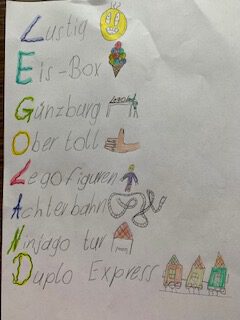 Lustig
Eis-Box
Günzburg
Ober toll
Lego figuren
Achterbahn
Ninjago tur
Duplo Express